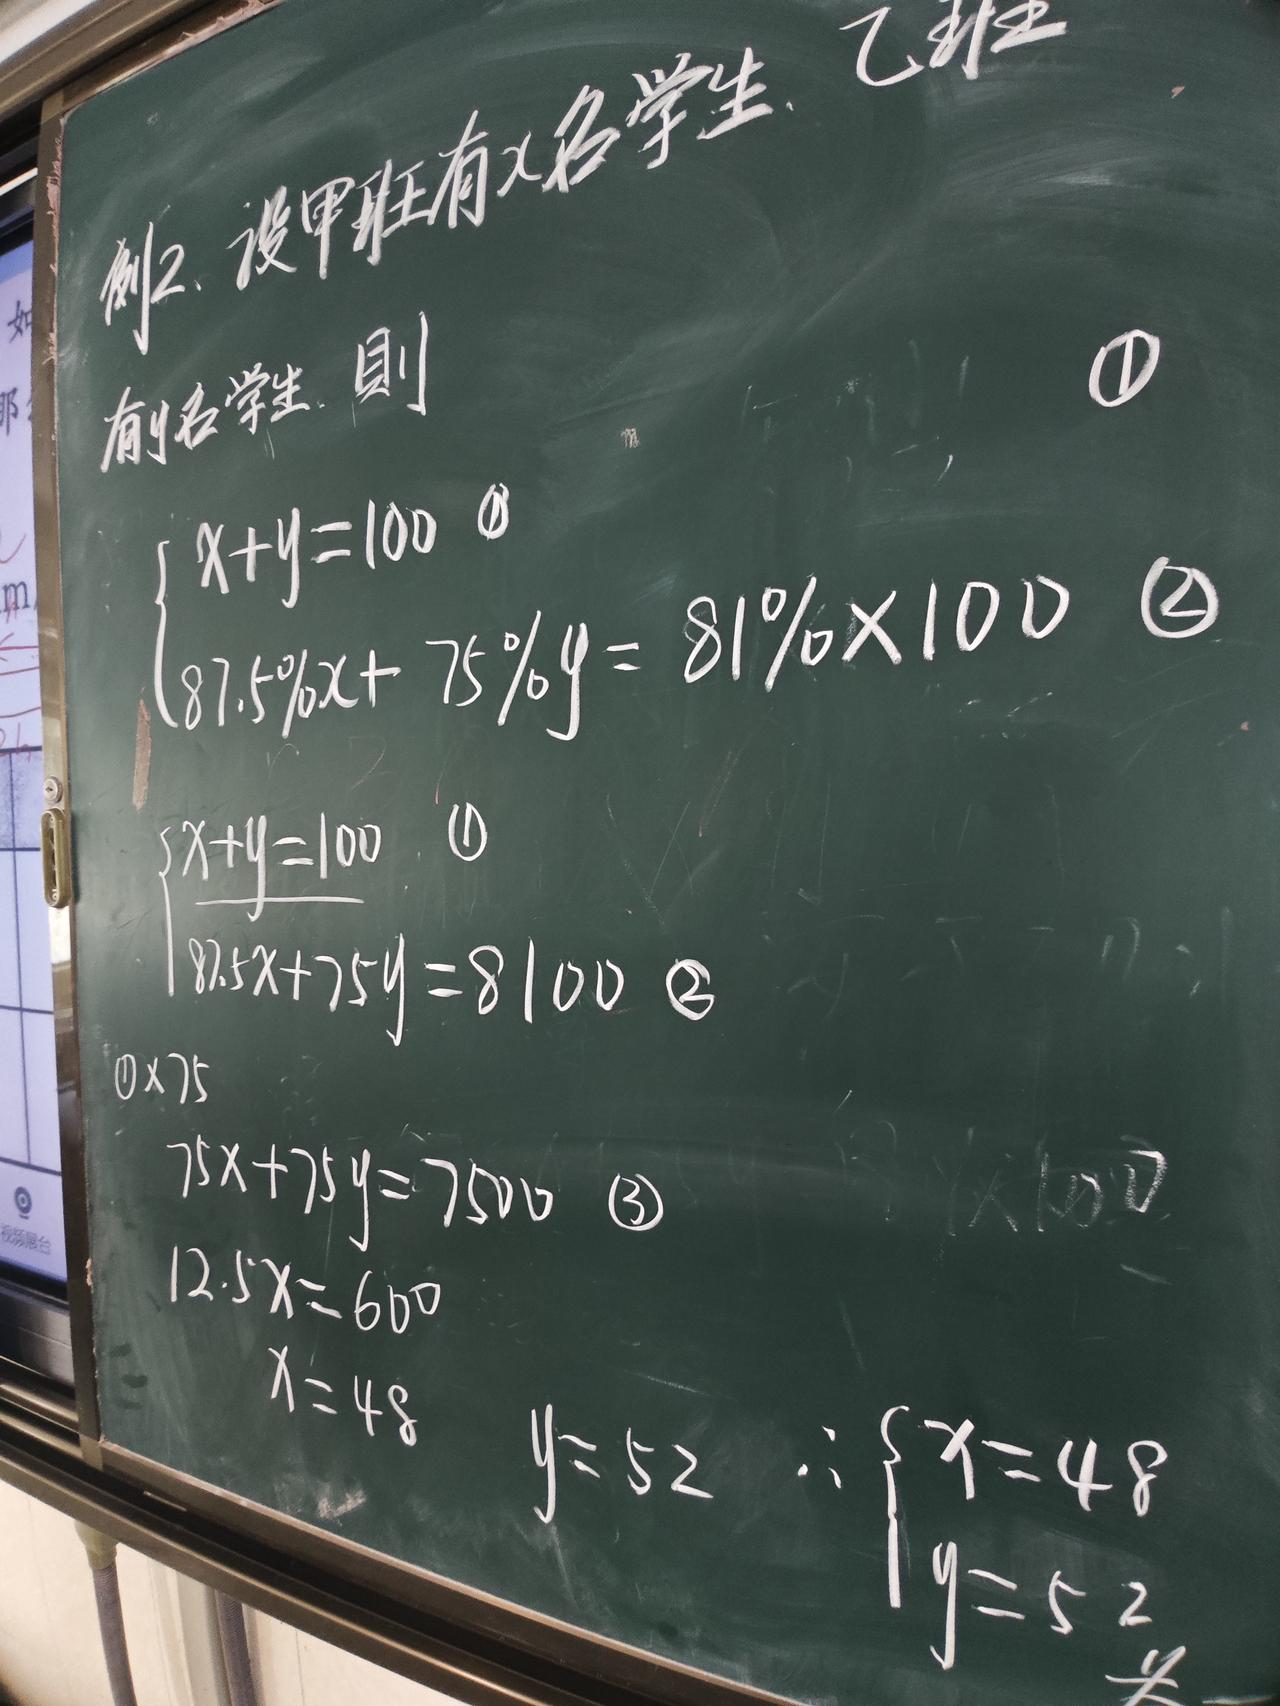 例2、设甲班有x名学生、乙班
有y名学生、則
①
x+y=100 ①
87.5%x+75%y=81%×100 ②
x+y=100 ①
87.5x+75y=8100 ②
①×75
75x+75y=7500 ③
12.5x=600
x=48
y=52 ∴ x=48
y=52
如
那
m
视频展台